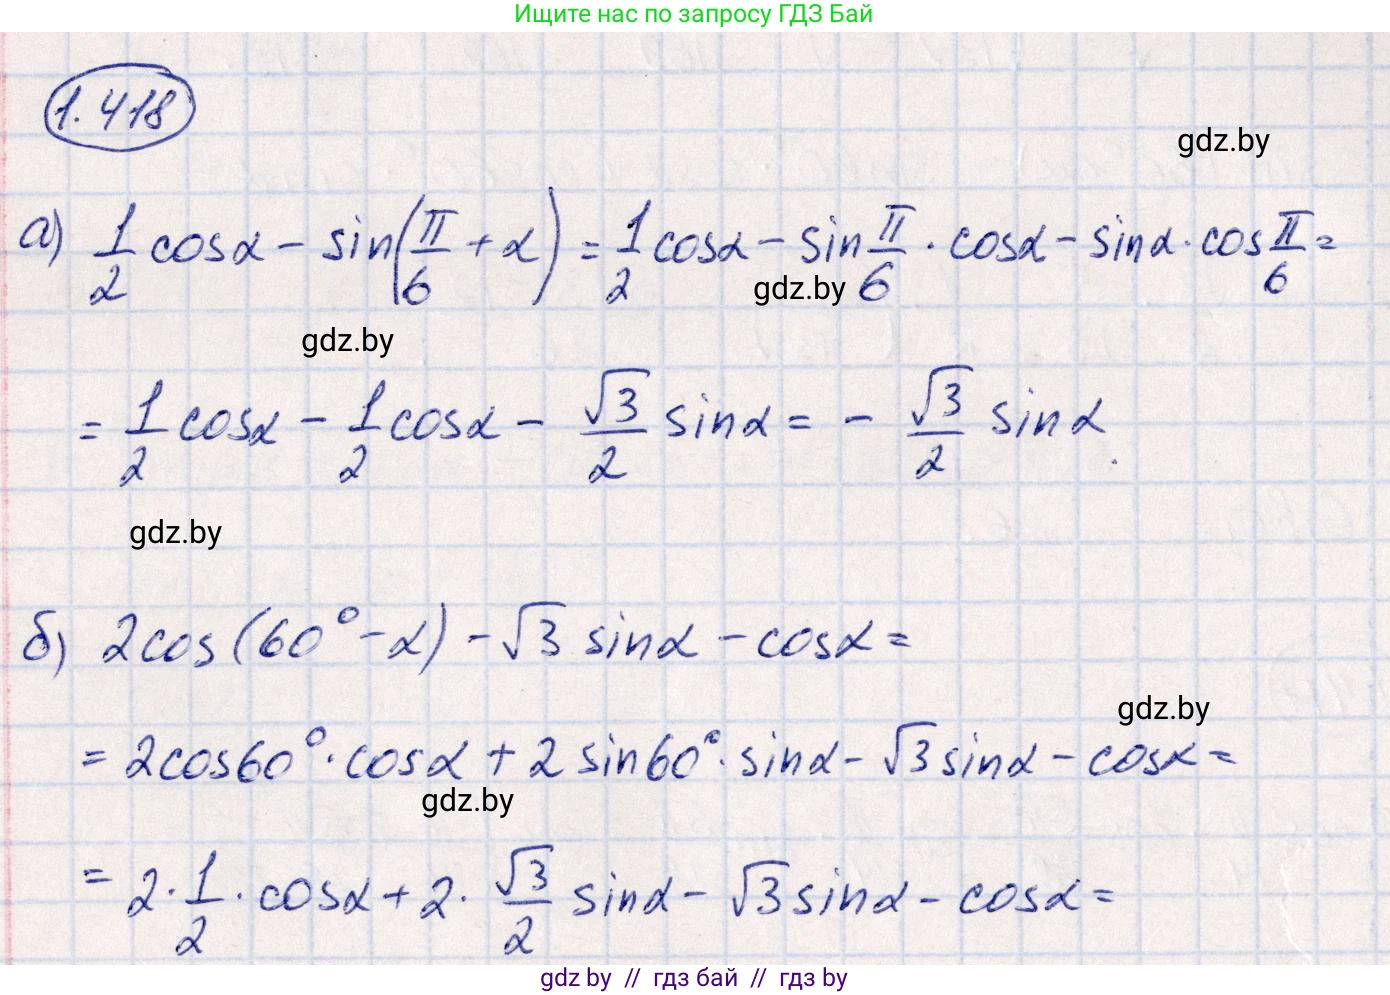 Ищите нас по запросу ГДЗ Бай
1.418
gdz.by
а) 1/2 cosα - sin(π/6 + α) = 1/2 cosα - sin π/6 · cosα - sinα · cos π/6 =
gdz.by
gdz.by
= 1/2 cosα - 1/2 cosα - √3/2 sinα = - √3/2 sinα.
gdz.by
б) 2cos(60° - α) - √3 sinα - cosα =
gdz.by
= 2cos60° · cosα + 2 sin60° · sinα - √3 sinα - cosα =
gdz.by
= 2 · 1/2 · cosα + 2 · √3/2 sinα - √3 sinα - cosα =
gdz by // гдз бай // гдз by